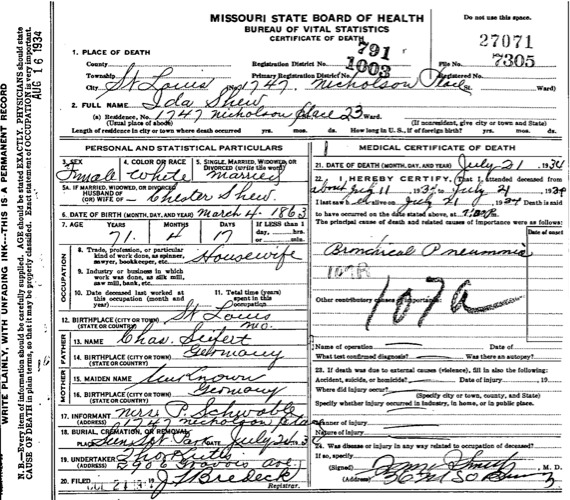 MISSOURI STATE BOARD OF HEALTH
BUREAU OF VITAL STATISTICS
CERTIFICATE OF DEATH
Do not use this space.
AUG 16 1934
WRITE PLAINLY, WITH UNFADING INK---THIS IS A PERMANENT RECORD
N. B.—Every item of information should be carefully supplied. AGE should be stated EXACTLY. PHYSICIANS should state
CAUSE OF DEATH in plain terms, so that it may be properly classified. Exact statement of OCCUPATION is very important.
1. PLACE OF DEATH
County
Registration District No. 791
File No. 27071
Township
Primary Registration District No. 1003
Registered No. 7305
City St Louis (No. 1747 Nicholson Place St. Ward)
2. FULL NAME Ida Shew
(a) Residence, No. 1747 Nicholson Place 23 Ward.
(Usual place of abode)
(If nonresident, give city or town and State)
Length of residence in city or town where death occurred yrs. mos. ds. How long in U. S., if of foreign birth? yrs. mos. ds.
PERSONAL AND STATISTICAL PARTICULARS
3. SEX Female
4. COLOR OR RACE White
5. SINGLE, MARRIED, WIDOWED, OR DIVORCED (write the word) Married
5A. IF MARRIED, WIDOWED, OR DIVORCED
HUSBAND OF
(OR) WIFE OF Chester Shew
6. DATE OF BIRTH (MONTH, DAY, AND YEAR) March 4 1863
7. AGE YEARS 71 MONTHS 4 DAYS 17 If LESS than 1 day, hrs. or min.
OCCUPATION
8. Trade, profession, or particular kind of work done, as spinner, sawyer, bookkeeper, etc. Housewife
9. Industry or business in which work was done, as silk mill, saw mill, bank, etc.
10. Date deceased last worked at this occupation (month and year)
11. Total time (years) spent in this occupation
12. BIRTHPLACE (CITY OR TOWN) St Louis
(STATE OR COUNTRY) Mo.
FATHER
13. NAME Chas. Seifert
14. BIRTHPLACE (CITY OR TOWN) Germany
(STATE OR COUNTRY)
MOTHER
15. MAIDEN NAME Unknown
16. BIRTHPLACE (CITY OR TOWN) Germany
(STATE OR COUNTRY)
17. INFORMANT Mrs P. Schwable
(ADDRESS) 1747 Nicholson Place
18. BURIAL, CREMATION, OR REMOVAL
July
19. UNDERTAKER
(ADDRESS) 2906 Gravois Ave.
20. FILED JUL 21 J. F. Bredeck
Registrar.
MEDICAL CERTIFICATE OF DEATH
21. DATE OF DEATH (MONTH, DAY, AND YEAR) July 21 1934
22. I HEREBY CERTIFY, That I attended deceased from
about July 11 1934 to July 21 1934
I last saw h alive on July 21 1934 Death is said
to have occurred on the date stated above, at
The principal cause of death and related causes of importance were as follows:
Date of onset
Bronchical Pneumonia
107A
107a
Other contributory causes of importance:
Name of operation Date of
What test confirmed diagnosis? Was there an autopsy?
23. If death was due to external causes (violence), fill in also the following:
Accident, suicide, or homicide? Date of injury 19
Where did injury occur?
(Specify city or town, county, and State)
Specify whether injury occurred in industry, in home, or in public place.
Manner of injury
Nature of injury
24. Was disease or injury in any way related to occupation of deceased?
If so, specify
(Signed) Smith, M. D.
(Address)